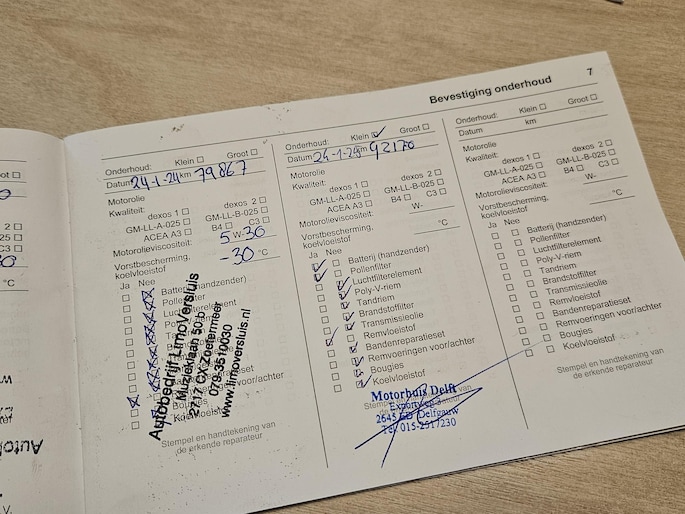 Bevestiging onderhoud 7
Onderhoud: Klein Groot
Datum 24-1-24 km 79867
Motorolie
Kwaliteit:
dexos 1 dexos 2
GM-LL-A-025 GM-LL-B-025
ACEA A3 B4 C3
Motorolieviscositeit: 5 W-30
Vorstbescherming,
koelvloeistof -30 °C
Ja Nee
Batterij (handzender)
Pollenfilter
Luchtfilterelement
Autobedrijf LimoVersluis
Muzieklaan 50 b
2717 CX Zoetermeer
079-3510030
www.limoversluis.nl
Koelvloeistof
Stempel en handtekening van
de erkende reparateur
Onderhoud: Klein Groot
Datum 24-1-25 km 92170
Motorolie
Kwaliteit:
dexos 1 dexos 2
GM-LL-A-025 GM-LL-B-025
ACEA A3 B4 C3
Motorolieviscositeit: W-
Vorstbescherming,
koelvloeistof °C
Ja Nee
Batterij (handzender)
Pollenfilter
Luchtfilterelement
Poly-V-riem
Tandriem
Brandstoffilter
Transmissieolie
Remvloeistof
Bandenreparatieset
Remvoeringen voor/achter
Bougies
Koelvloeistof
Motorhuis Delft
Exportweg
2645 ED Delfgauw
Tel: 015-2517230
Onderhoud: Klein Groot
Datum km
Motorolie
Kwaliteit:
dexos 1 dexos 2
GM-LL-A-025 GM-LL-B-025
ACEA A3 B4 C3
Motorolieviscositeit: W-
Vorstbescherming,
koelvloeistof °C
Ja Nee
Batterij (handzender)
Pollenfilter
Luchtfilterelement
Poly-V-riem
Tandriem
Brandstoffilter
Transmissieolie
Remvloeistof
Bandenreparatieset
Remvoeringen voor/achter
Bougies
Koelvloeistof
Stempel en handtekening van
de erkende reparateur